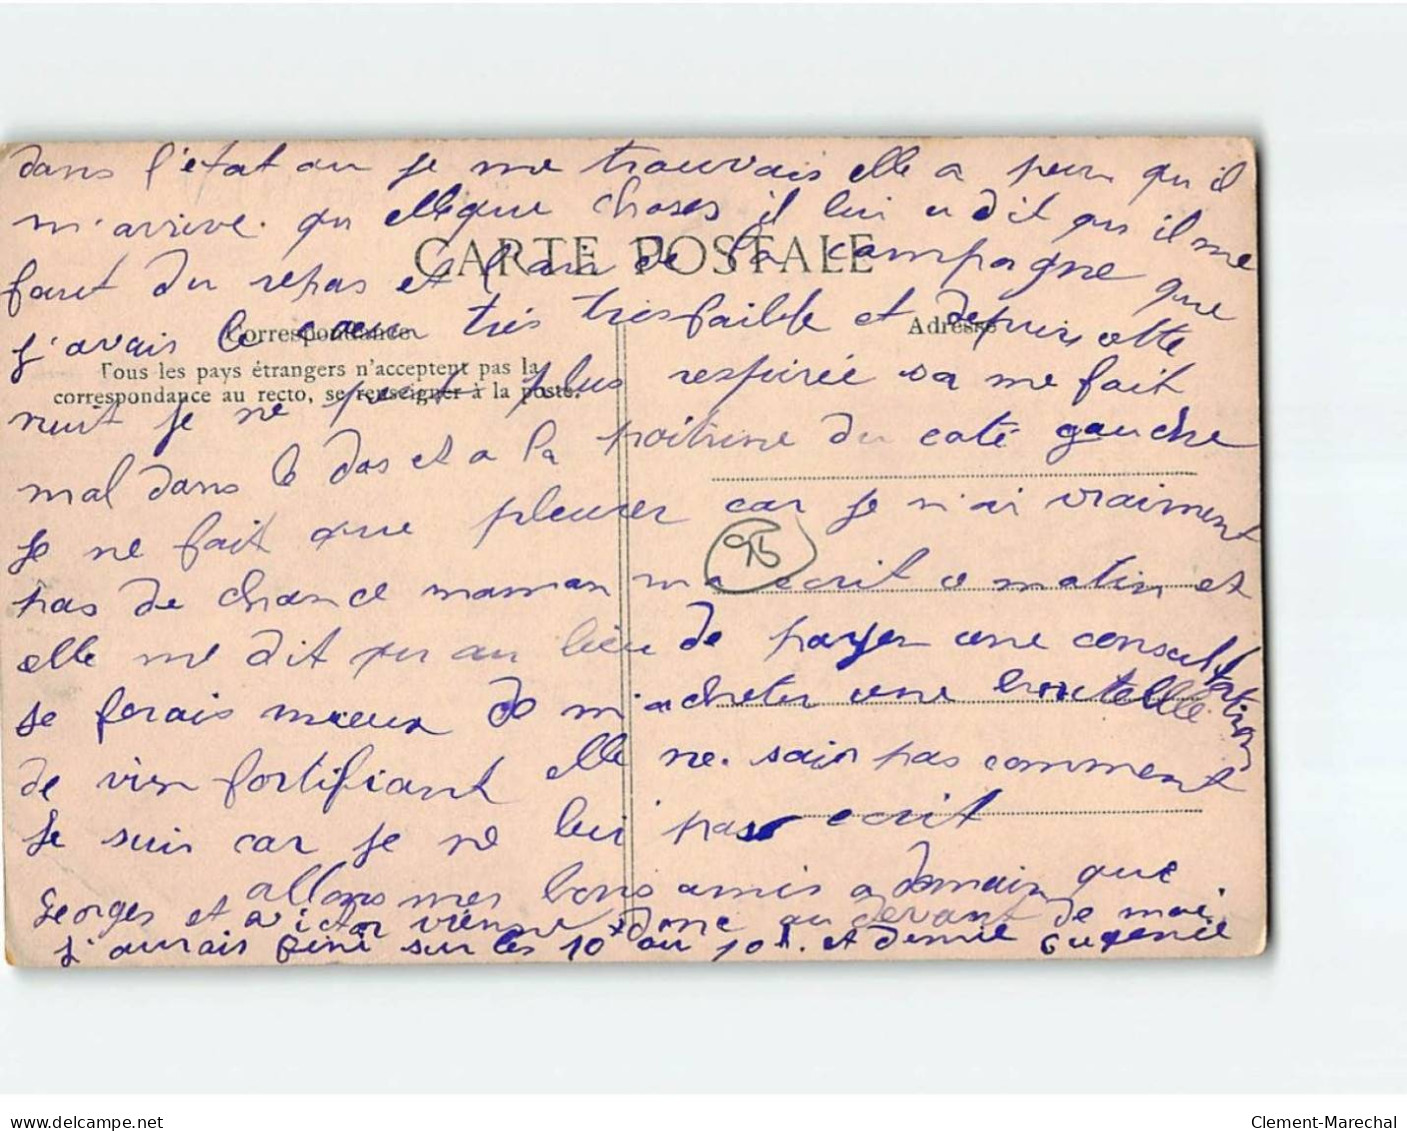 dans l'état ou je me trouvais elle a peur qu'il
m'arrive. qu elleque choses il lui a dit qu il me
faut du repas et l'air de la campagne que
CARTE POSTALE
j'avais le cœur très très faible et depuis cette
Correspondance
Adresse
Tous les pays étrangers n'acceptent pas la
correspondance au recto, se renseigner à la poste.
nuit je ne peut plus respirée sa me fait
mal dans le dos et a la poitrine du coté gauche
je ne fait que pleurer car je n'ai vraiment
95
pas de chance maman ma ecrit ce matin et
elle me dit qu au lieu de payer une consultation
je ferais mieux de m'acheter une bouteille
de vin fortifiant elle ne sais pas comment
je suis car je ne lui pas ecrit
allons mes bons amis a demain que
Georges et Victor vienne donc au devant de moi
j'aurais fini sur les 10h ou 10h. et demie Eugenie
delcampe.net
Clement-Marechal